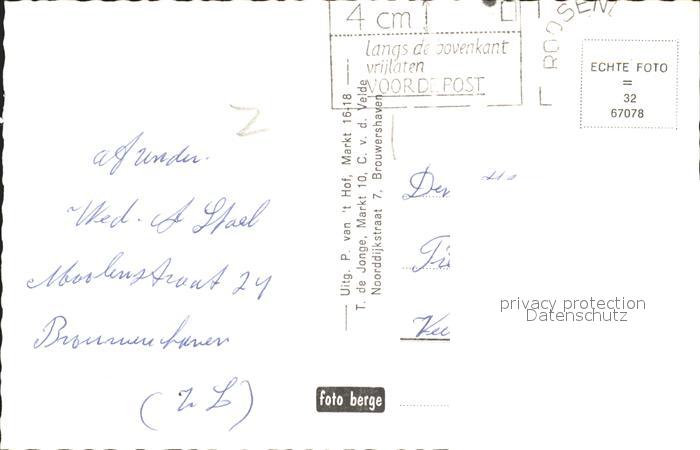 4 cm
langs de bovenkant
vrijlaten
VOOR DE POST
ROOSEN
ECHTE FOTO
=
32
67078
afzender.
Wed. A Stoel
Moolenstraat 24
Brouwershaven
(Z L)
Uitg. P. van 't Hof, Markt 16-18
T. de Jonge, Markt 10, C. v. d. Velde
Noorddijkstraat 7, Brouwershaven
Den
privacy protection
Datenschutz
foto berge